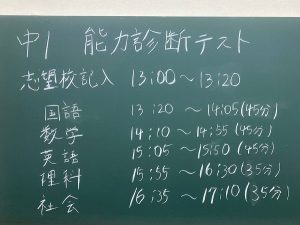 中1 能力診断テスト
志望校記入 13:00〜13:20
国語 13:20 〜14:05(45分)
数学 14:10〜14:55(45分)
英語 15:05〜15:50(45分)
理科 15:55 〜16:30(35分)
社会 16:35 〜17:10(35分)